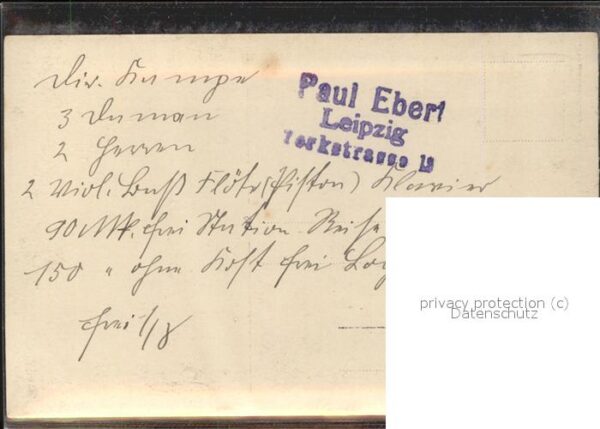 Dir. Kampe
3 Damen
2 Herren
2 Viol. Bass Flöte (Piston) Klavier
90 Mk. frei Station Reise
150 " ohne Kost frei Log
frei 1/8
Paul Ebert
Leipzig
Yorkstrasse 13
privacy protection (c)
Datenschutz